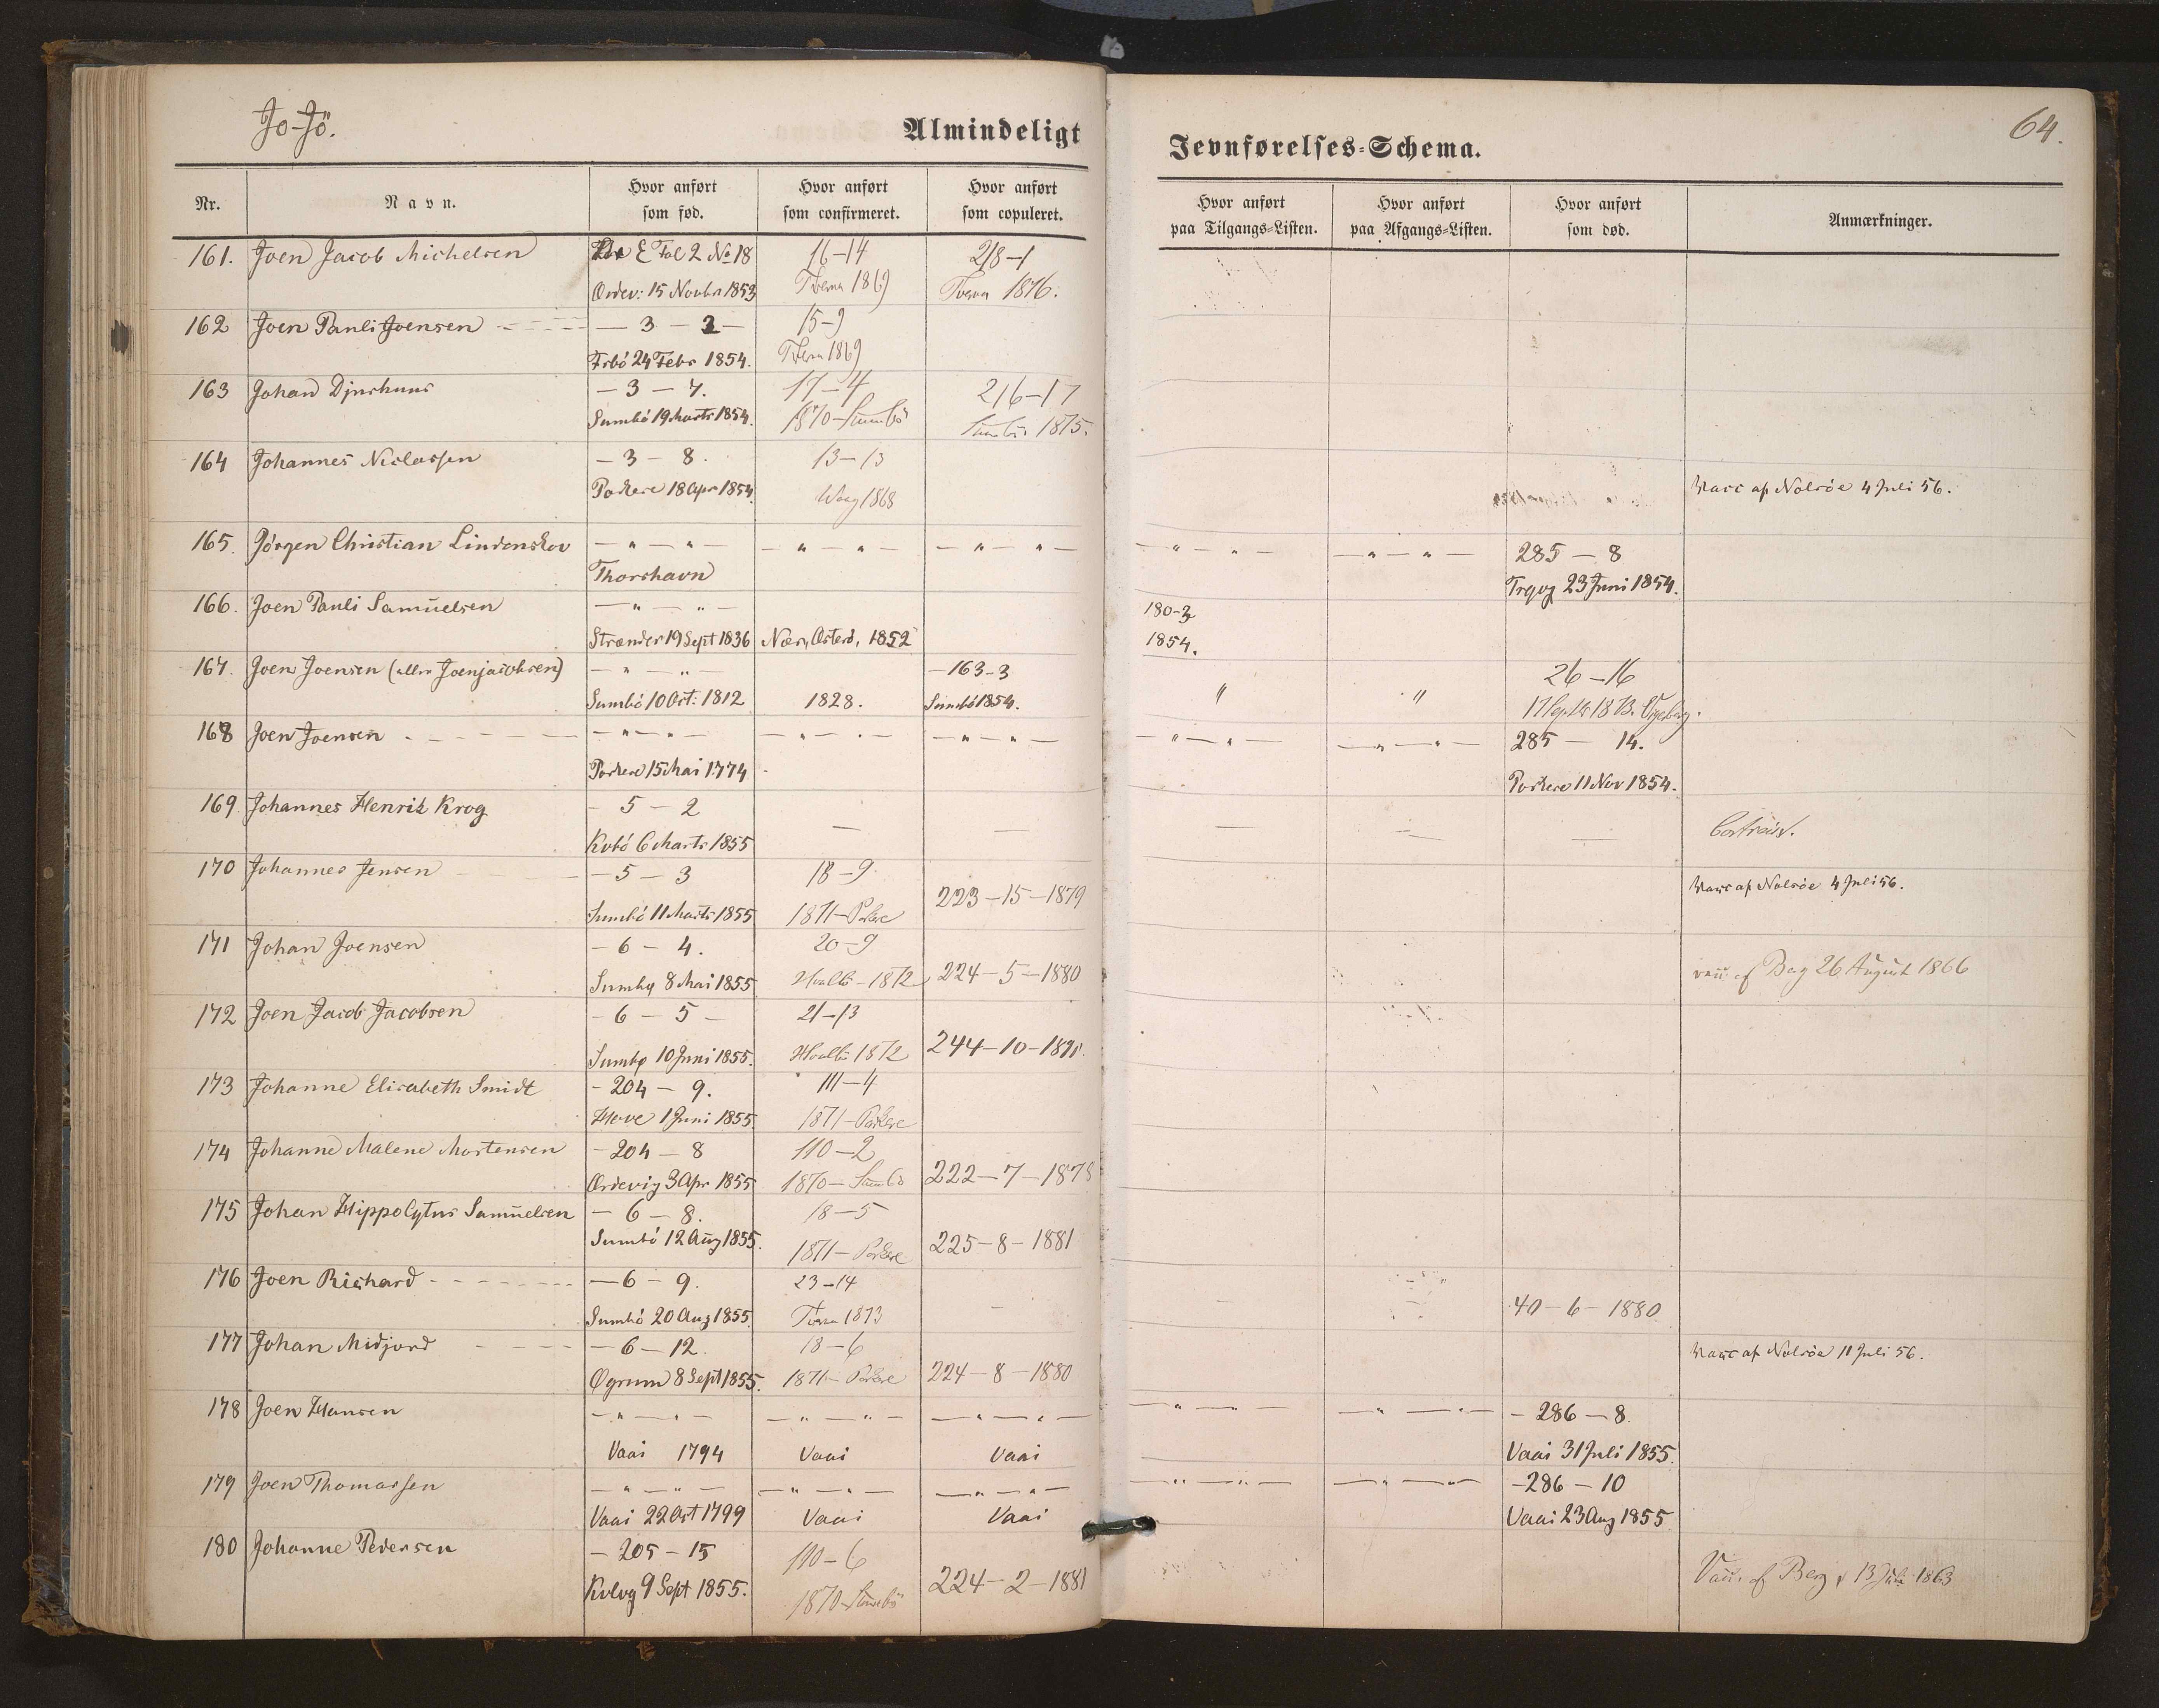 Jo-Jö.
Almindeligt
Jevnførelses-Schema.
64.
Nr.
Navn.
Hvor anført som fød.
Hvor anført som confirmeret.
Hvor anført som copuleret.
Hvor anført paa Tilgangs-Listen.
Hvor anført paa Afgangs-Listen.
Hvor anført som død.
Anmærkninger.
161. Joen Jacob Michelsen E Fol 2 No 18 16-14 218-1
Ordev: 15 Novbr 1853 Tveraa 1869 Tveraa 1876.
162 Joen Pauli Joensen — 3 — 2 — 15-9
Frbö 24 Febr 1854. Tveraa 1869
163 Johan Djurhuus — 3 — 7. 17-4 216-17
Sumbö 19 Marts 1854. 1870-Sumbö Sumbö 1875.
164 Johannes Niclassen — 3 — 8. 13-13
Porkere 18 Apr 1854. Waag 1868 Vacc af Nolsöe 4 Juli 56.
165. Jörgen Christian Lindenskov — " — " — — " — " — — " — " — — " — " — — " — " — 285 — 8
Thorshavn Trgvg 23 Juni 1854.
166. Joen Pauli Samuelsen — " — " — 180-3
Strænder 19 Sept 1836 Næs, Österö, 1852 1854.
167. Joen Joensen (eller Joenjacobsen) — " — " — -163-3 26-16
Sumbö 10 Oct: 1812 1828. Sumbö 1854. " " 17 Septbr 1873.
168 Joen Joensen — " — " — — " — " — — " — " — — " — " — — " — " — 285 — 14.
Porkere 15 Mai 1774 Porkere 11 Nov 1854.
169 Johannes Henrik Krog — 5 — 2
Kvbö 6 Marts 1855 — — — — — bortreist.
170 Johannes Jensen — 5 — 3 18-9 223-15-1879 Vacc af Nolsöe 4 Juli 56.
Sumbö 11 Marts 1855 1871-Porkere
171 Johan Joensen — 6 — 4. 20-9
Sumbø 8 Mai 1855 Hvalbö-1872 224-5-1880 26 August 1866
172 Joen Jacob Jacobsen — 6 — 5 — 21-13
Sumbø 10 Juni 1855. Hvalbö 1872 244-10-1891.
173 Johanne Elisabeth Smidt — 204 — 9. 111-4
Hove 1 Juni 1855. 1871-Porkere
174 Johanne Malene Mortensen — 204 — 8 110-2
Ordevig 3 Apr 1855 1870-Sumbö 222-7-1878
175 Johan Hippolytus Samuelsen — 6 — 8. 18-5
Sumbö 12 Aug 1855. 1871-Porkere 225-8-1881
176 Joen Richard — 6 — 9. 23-14
Sumbö 20 Aug 1855. Tveraa 1873 40-6-1880
177 Johan Midjord — 6 — 12. 18-6 Vacc af Nolsöe 11 Juli 56.
Øgrum 8 Sept 1855. 1871-Porkere 224-8-1880
178 Joen Hansen — " — " — — " — " — — " — " — — " — " — — " — " — — 286 — 8.
Vaai 1794 Vaai Vaai Vaai 31 Juli 1855.
179 Joen Thomassen — " — " — — " — " — — " — " — — " — " — — " — " — -286 — 10
Vaai 22 Oct 1799 Vaai Vaai Vaai 23 Aug 1855
180 Johanne Pedersen — 205 — 15 110-6
Kvlvg 9 Sept 1855. 1870-Sumbö 224-2-1881 Vacc. af Berg 13 Juli 1863